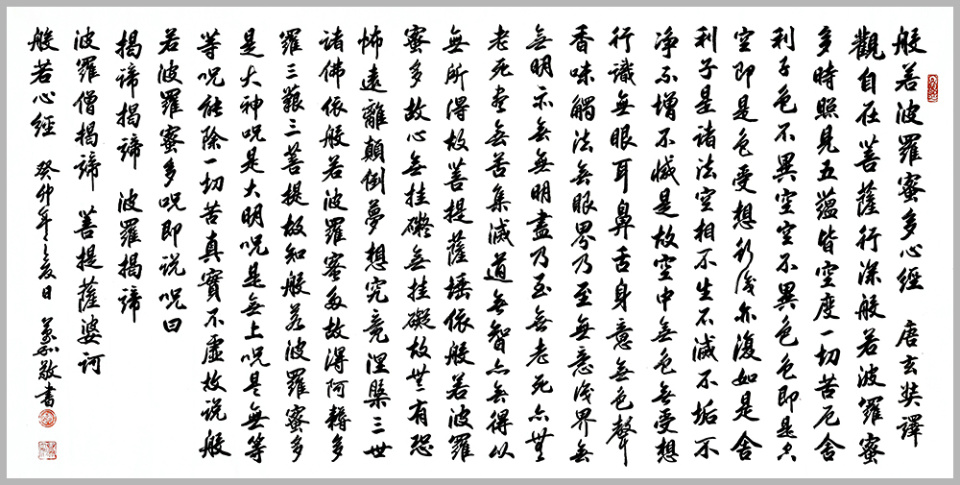 般若波羅蜜多心經 唐玄奘譯
觀自在菩薩行深般若波羅蜜
多時照見五蘊皆空度一切苦厄舍
利子色不異空空不異色色即是空
空即是色受想行識亦復如是舍
利子是諸法空相不生不滅不垢不
淨不增不減是故空中無色無受想
行識無眼耳鼻舌身意無色聲
香味觸法無眼界乃至無意識界無
無明亦無無明盡乃至無老死亦無
老死盡無苦集滅道無智亦無得以
無所得故菩提薩埵依般若波羅
蜜多故心無挂礙無挂礙故無有恐
怖遠離顛倒夢想究竟涅槃三世
諸佛依般若波羅蜜多故得阿耨多
羅三藐三菩提故知般若波羅蜜多
是大神咒是大明咒是無上咒是無等
等咒能除一切苦真實不虛故說般
若波羅蜜多呪即说呪曰
揭諦揭諦 波羅揭諦
波羅僧揭諦 菩提薩婆訶
般若心經 癸卯年之夏日 敬書